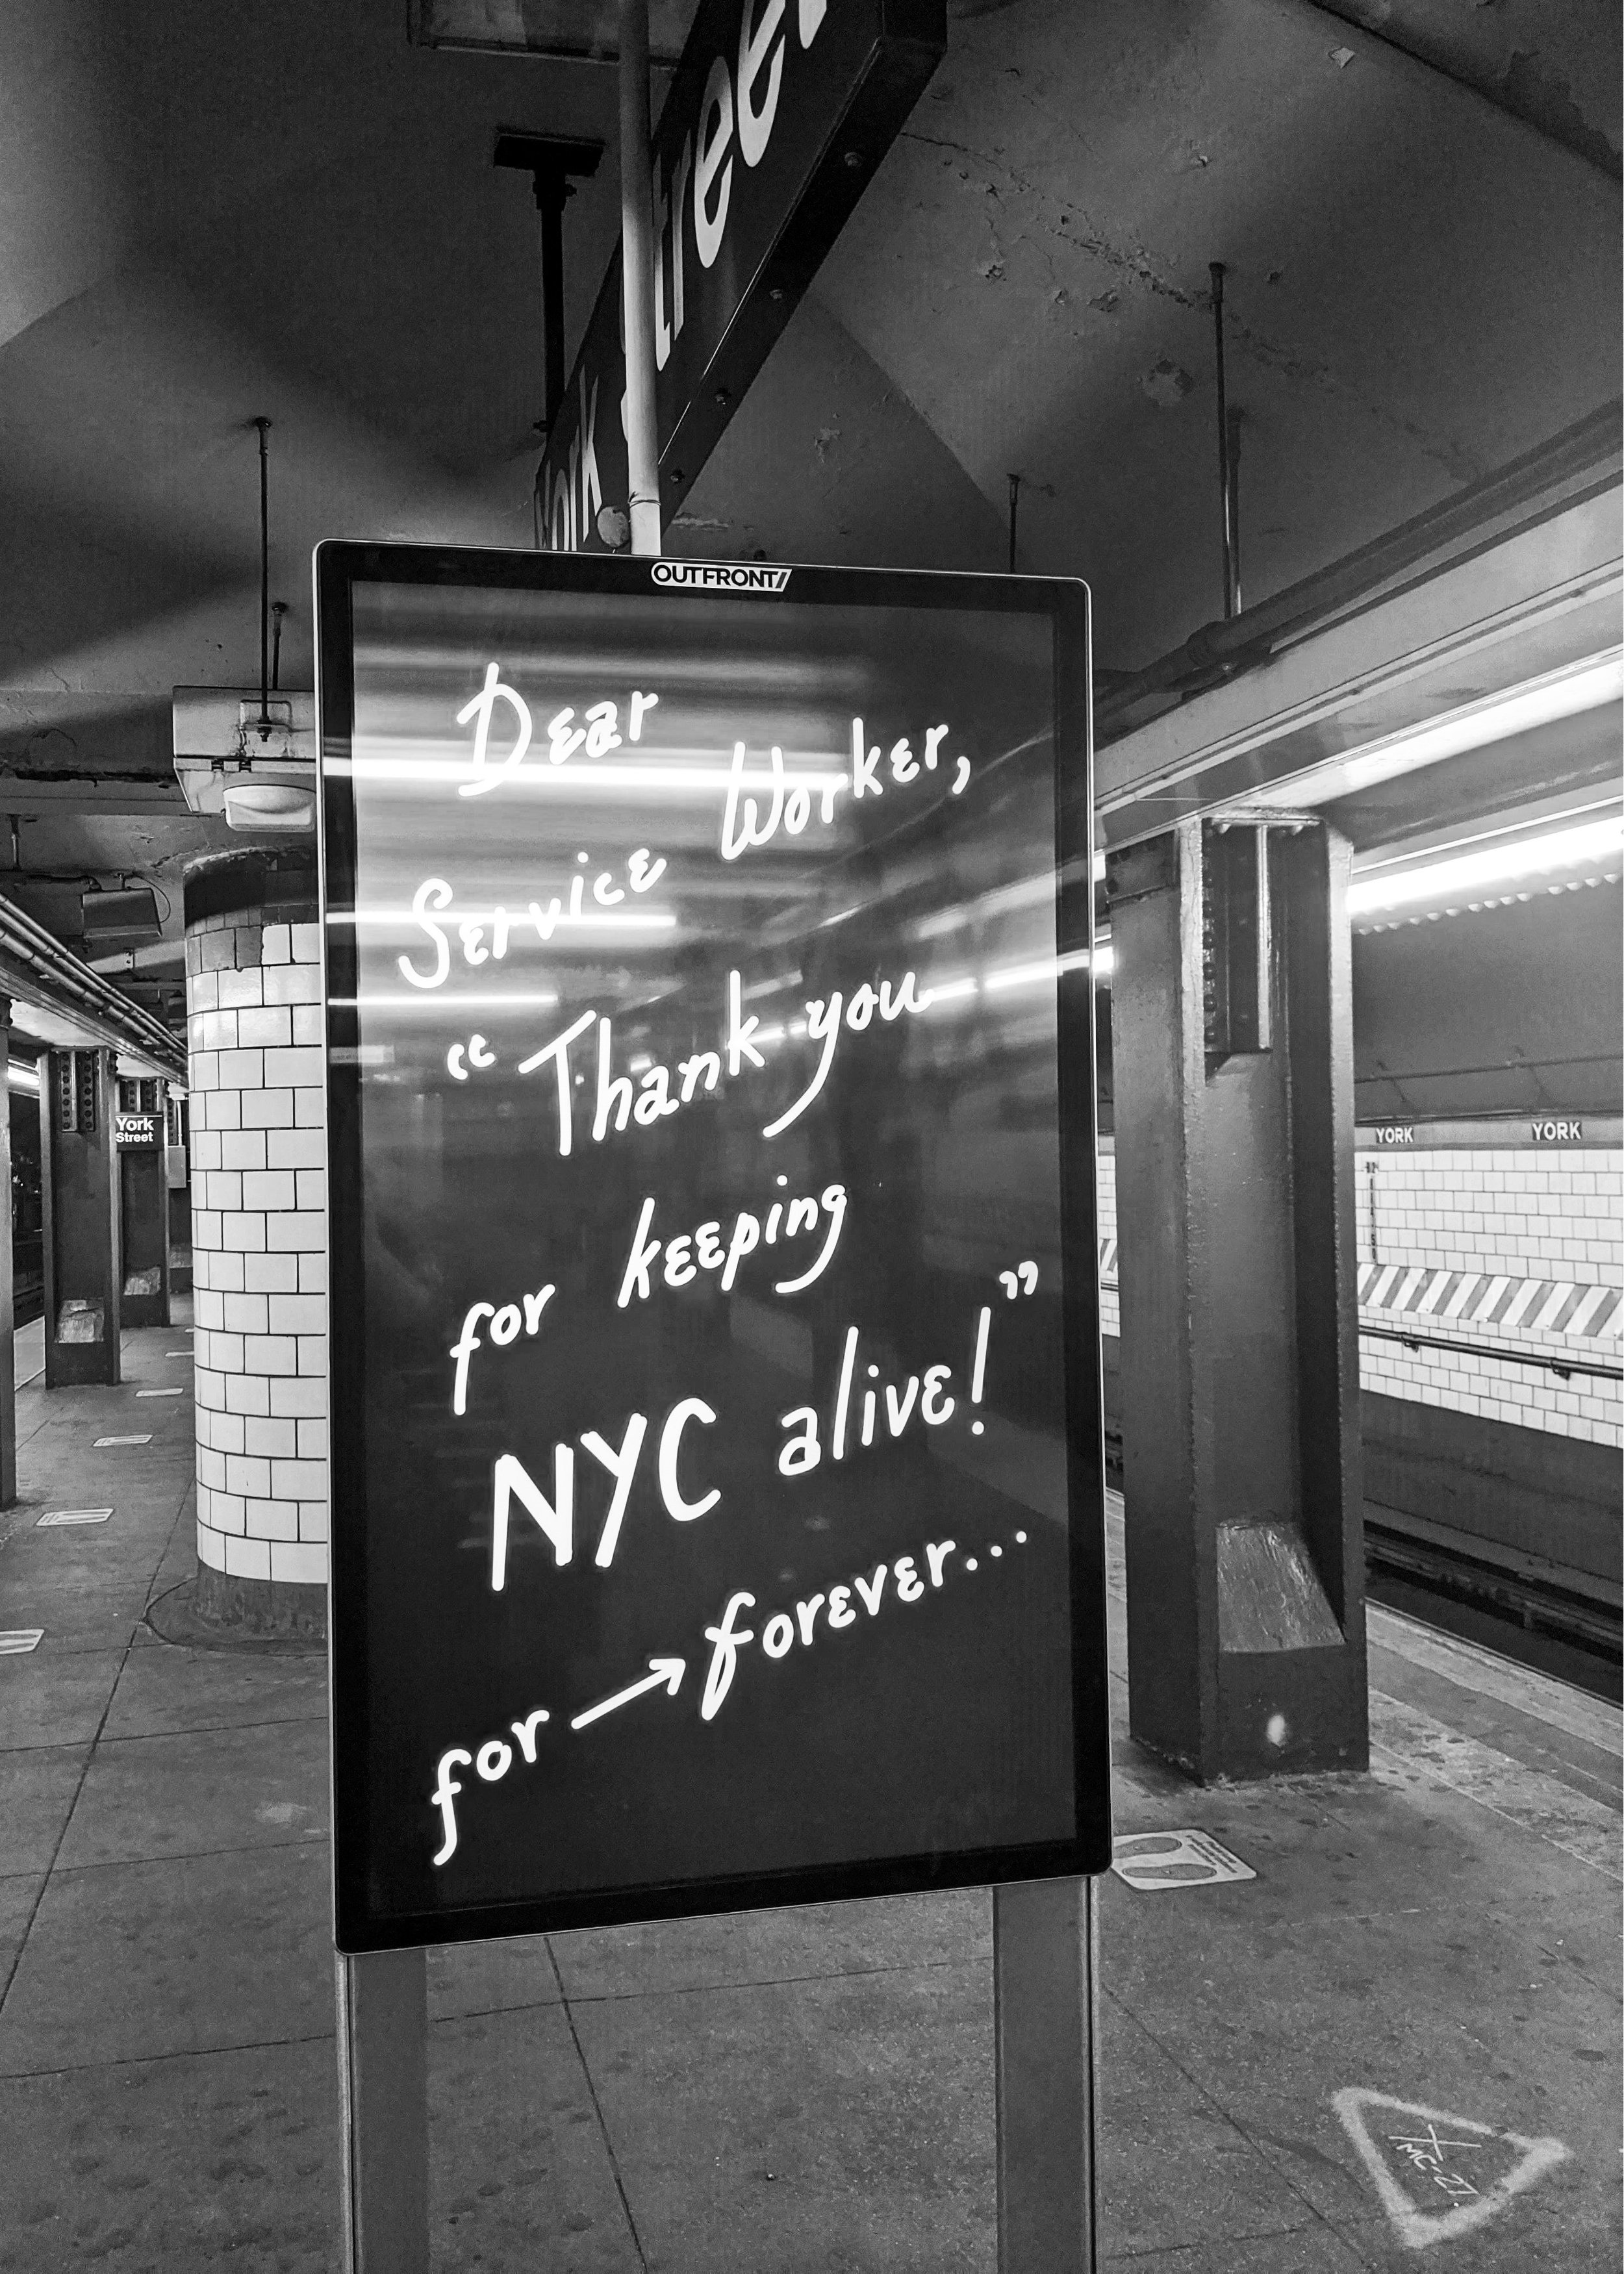 York Street
OUTFRONT/
Dear
Service Worker,
“Thank you
for keeping
NYC alive!”
for → forever...
York
Street
YORK
YORK
MC-27